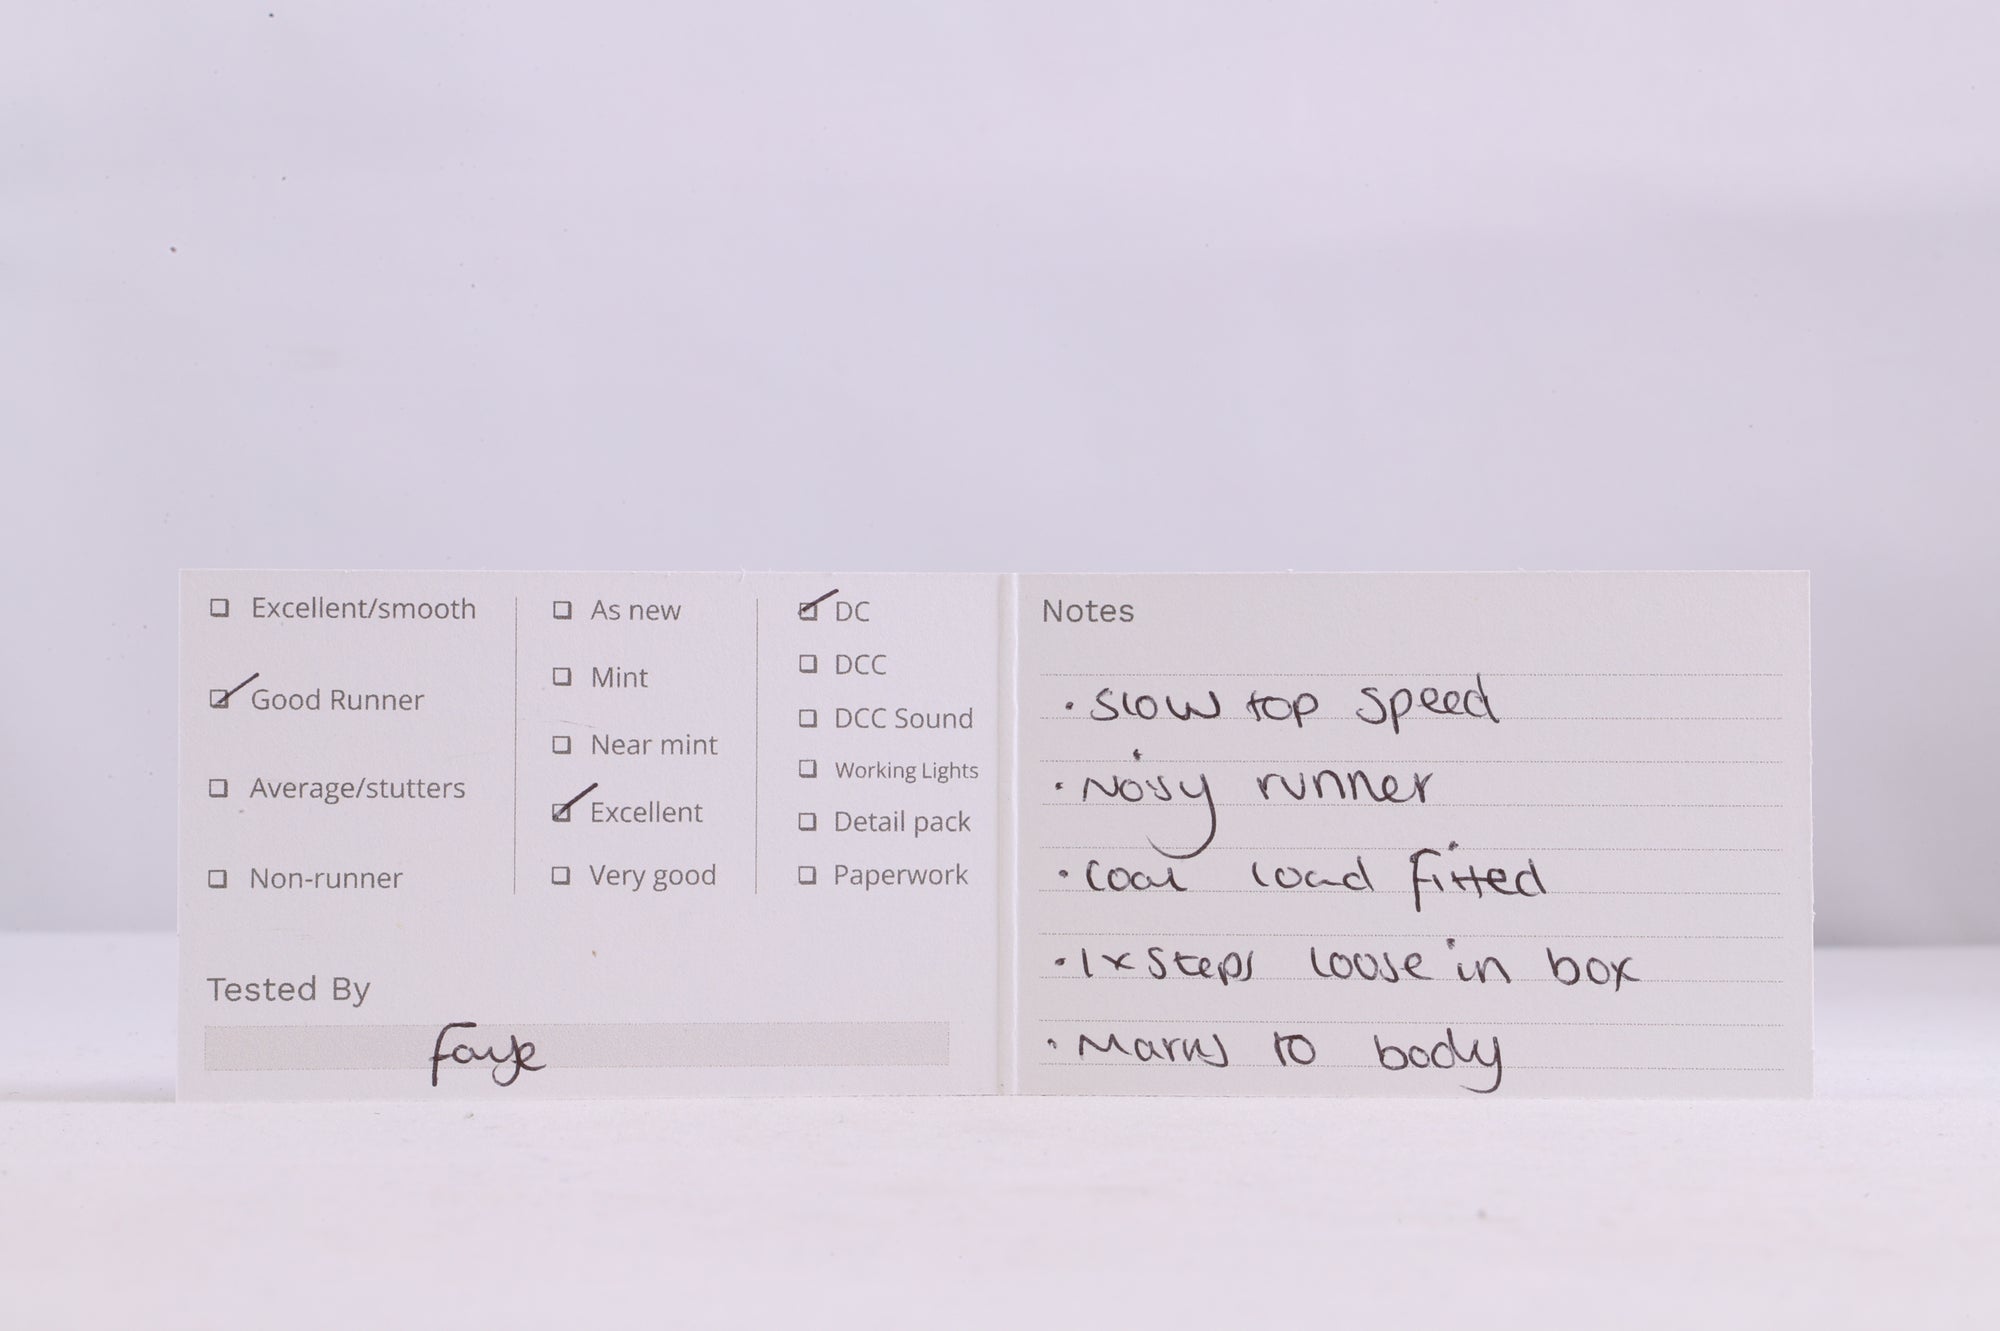 Excellent/smooth
Good Runner
Average/stutters
Non-runner
As new
Mint
Near mint
Excellent
Very good
DC
DCC
DCC Sound
Working Lights
Detail pack
Paperwork
Tested By
Faye
Notes
• Slow top speed
• Noisy runner
• Coal load fitted
• 1x steps loose in box
• Marks to body